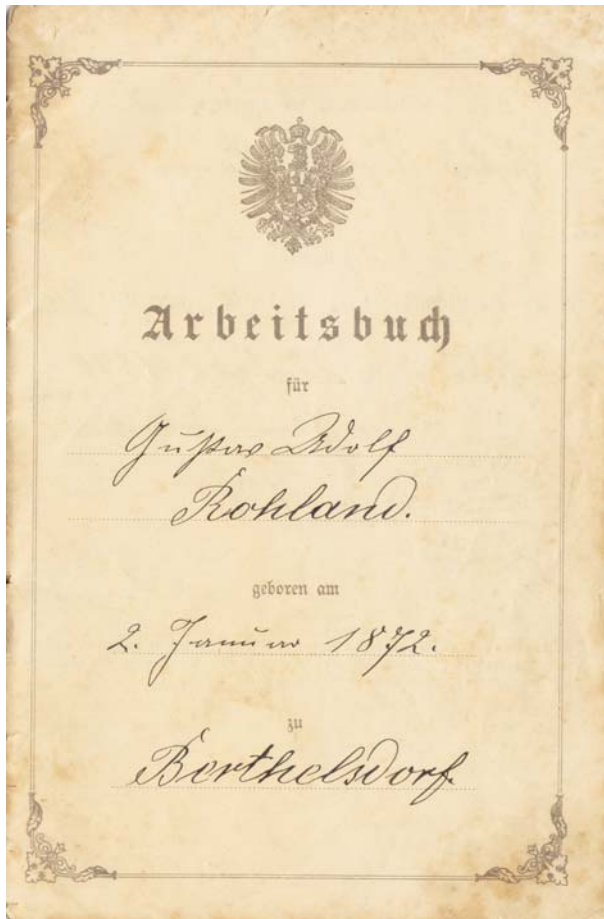 Arbeitsbuch
für
Gustav Adolf
Rohland.
geboren am
2. Januar 1872.
zu
Berthelsdorf.